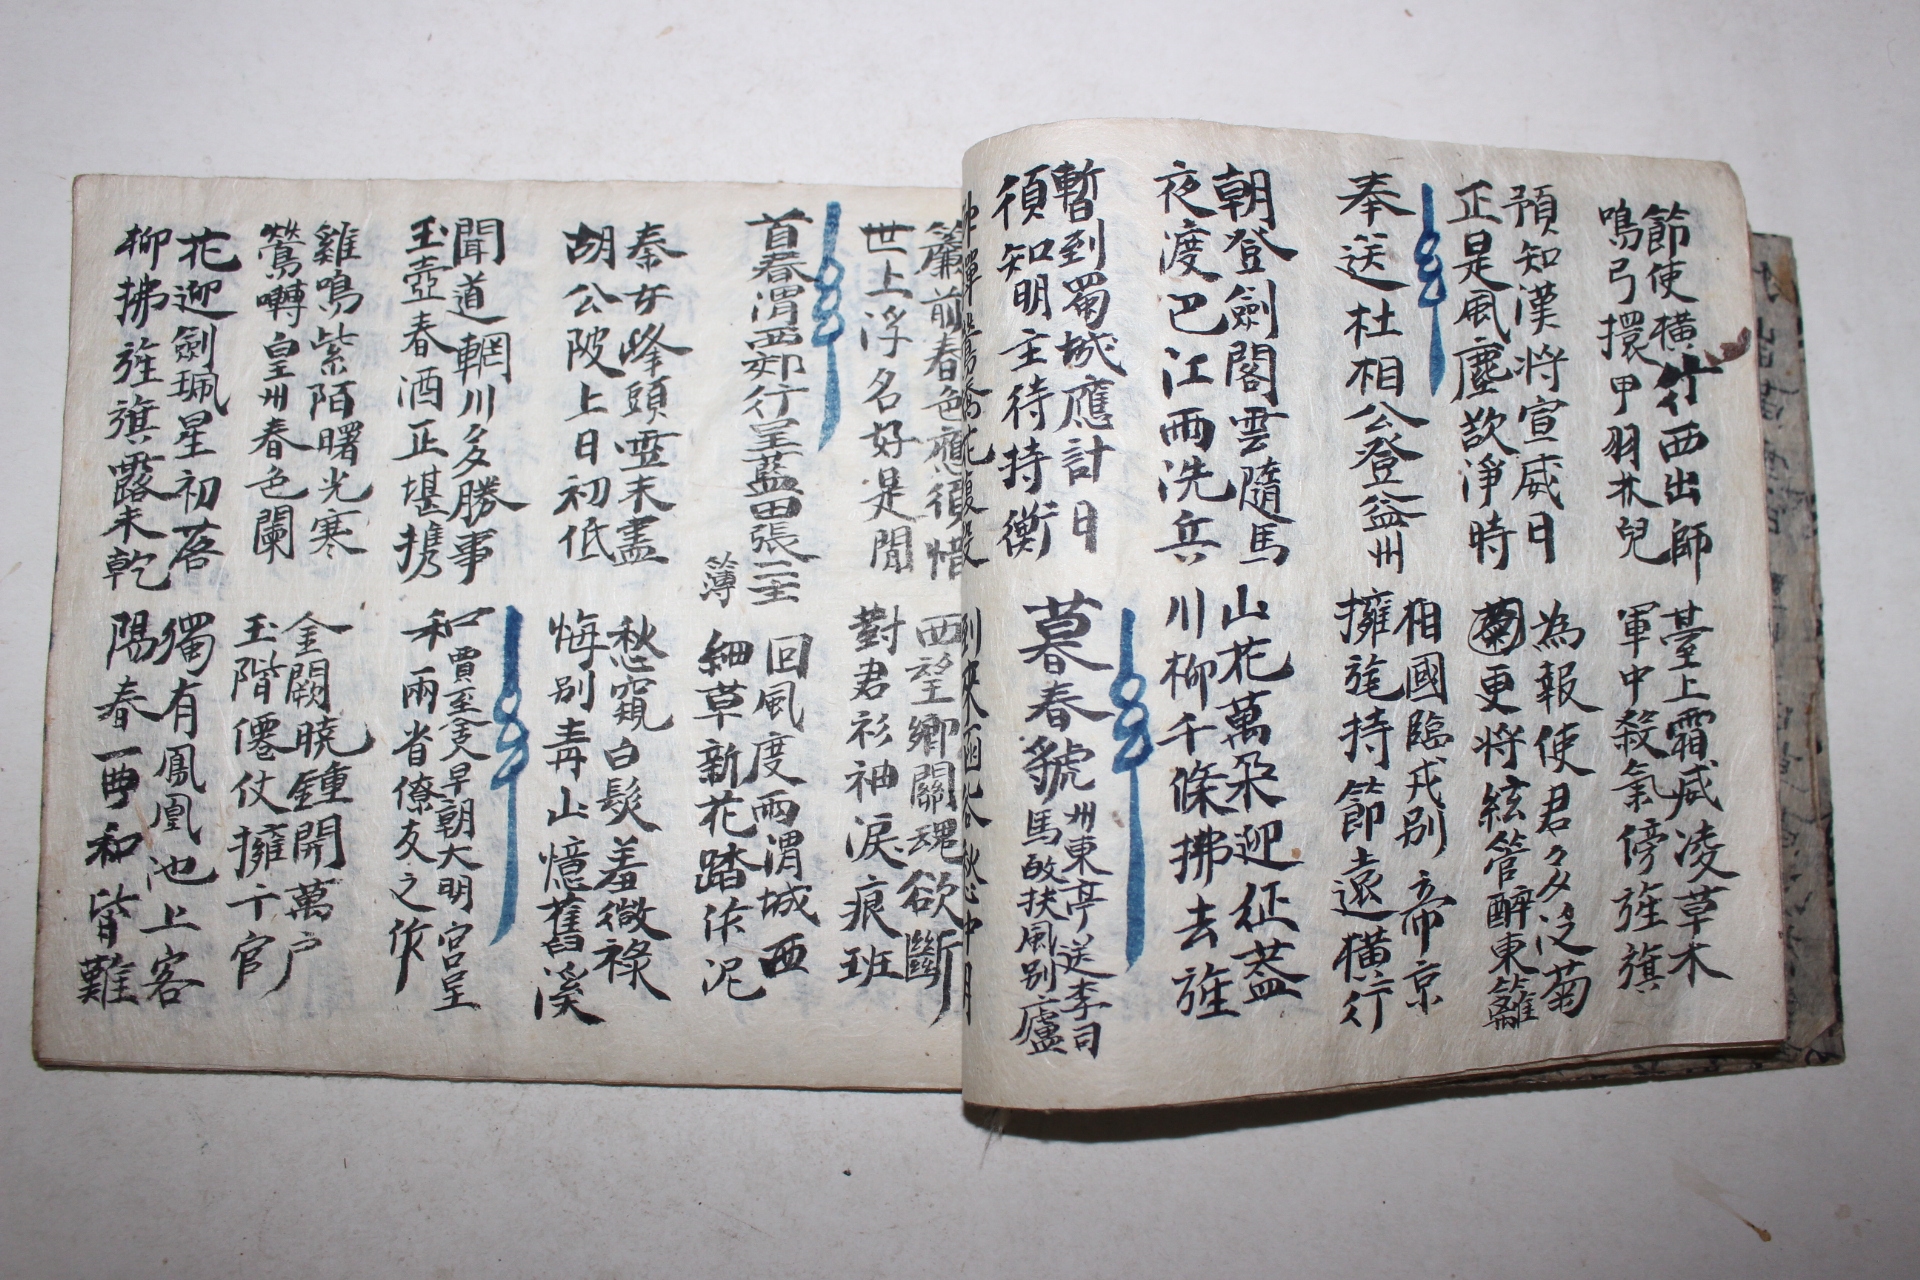 節使橫行西出師
鳴弓擐甲羽林兒
臺上霜威凌草木
軍中殺氣傍旌旗
預知漢將宣威日
正是風塵欲淨時
為報使君多泛菊
菊更將絃管醉東籬
奉送杜相公登益州
相國臨戎別帝京
擁旄持節遠橫行
朝登劍閣雲隨馬
夜渡巴江雨洗兵
山花萬朶迎征蓋
川柳千條拂去旌
暫到蜀城應計日
須知明主待持衡
暮春虢州東亭送李司
馬故扶風別廬
簾前春色應須惜
世上浮名好是閒
西望鄉關魂欲斷
對君衫袖淚痕班
首春渭西郊行呈藍田張二主
簿
回風度雨渭城西
細草新花踏作泥
秦女峰頭雪未盡
胡公陂上日初低
愁窺白髮羞微祿
悔別青山憶舊溪
聞道輞川多勝事
玉壺春酒正堪携
和賈至舍人早朝大明宮呈
兩省僚友之作
雞鳴紫陌曙光寒
鶯囀皇州春色闌
金闕曉鍾開萬戶
玉階僊仗擁千官
花迎劍珮星初落
柳拂旌旗露未乾
獨有鳳凰池上客
陽春一曲和皆難